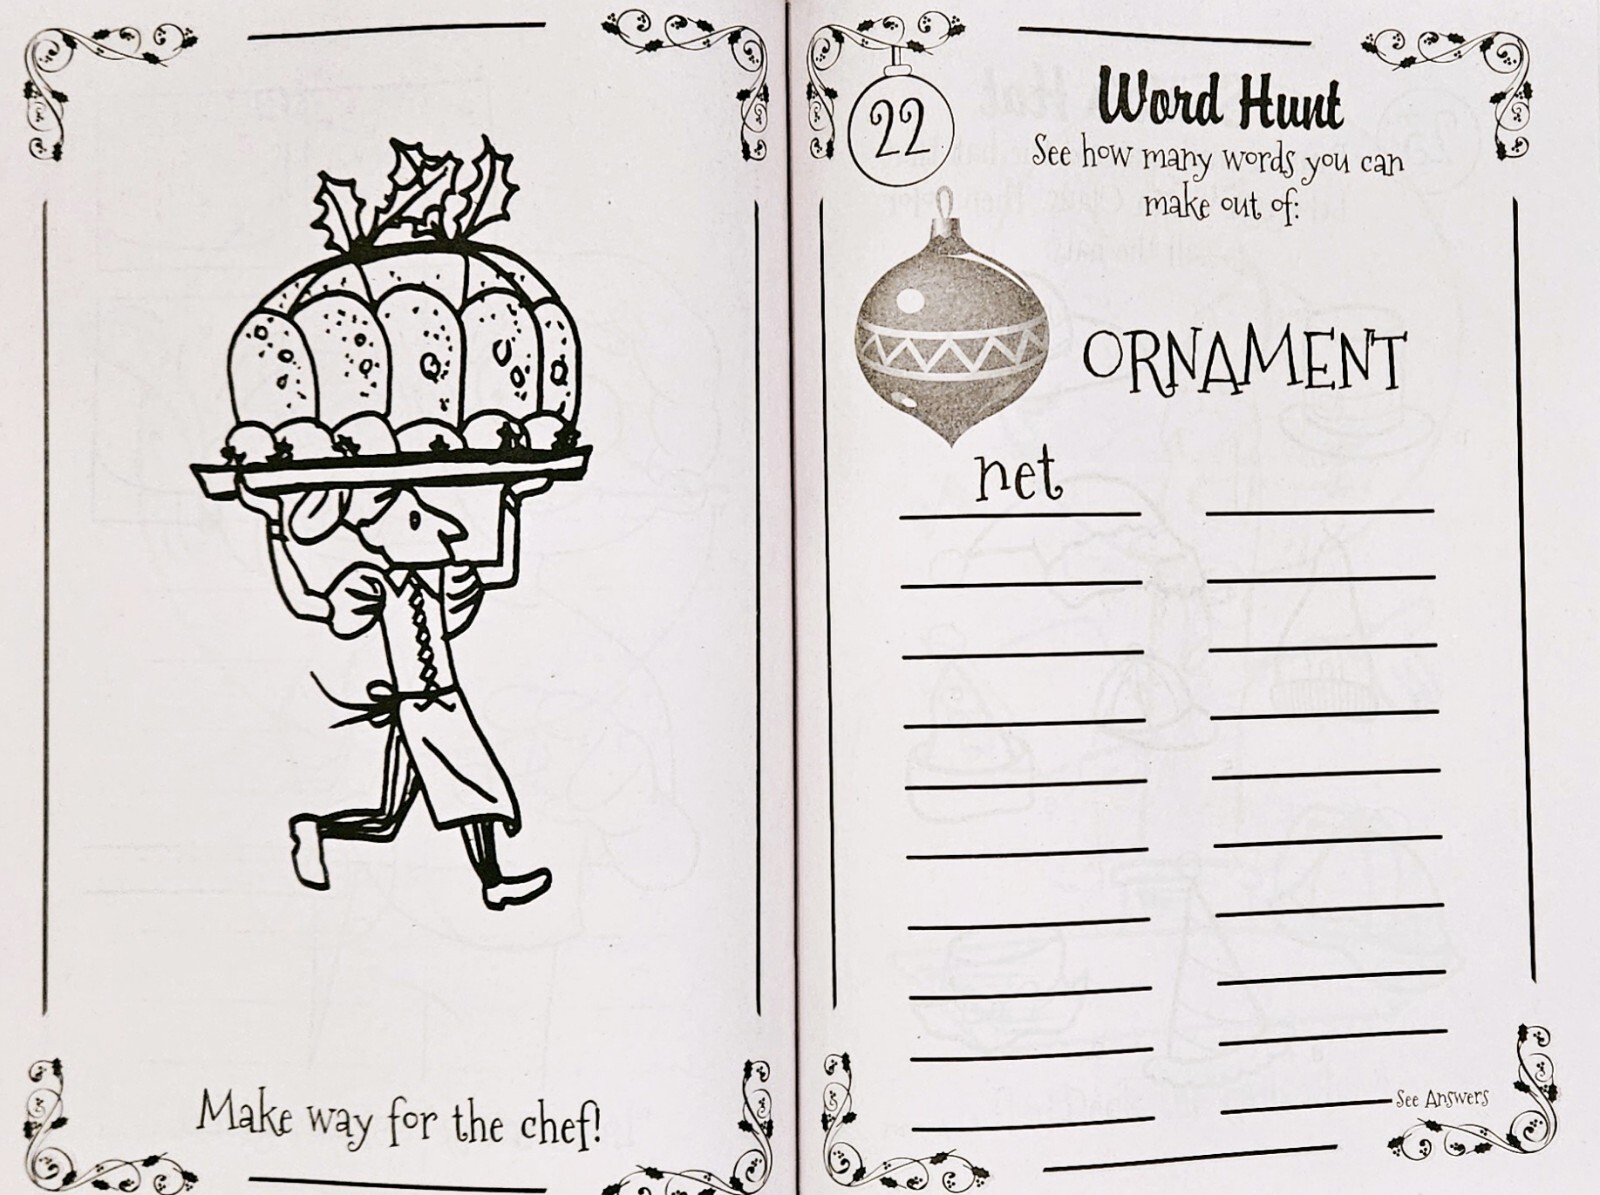 Make way for the chef!
22
Word Hunt
See how many words you can
make out of:
ORNAMENT
net
See Answers